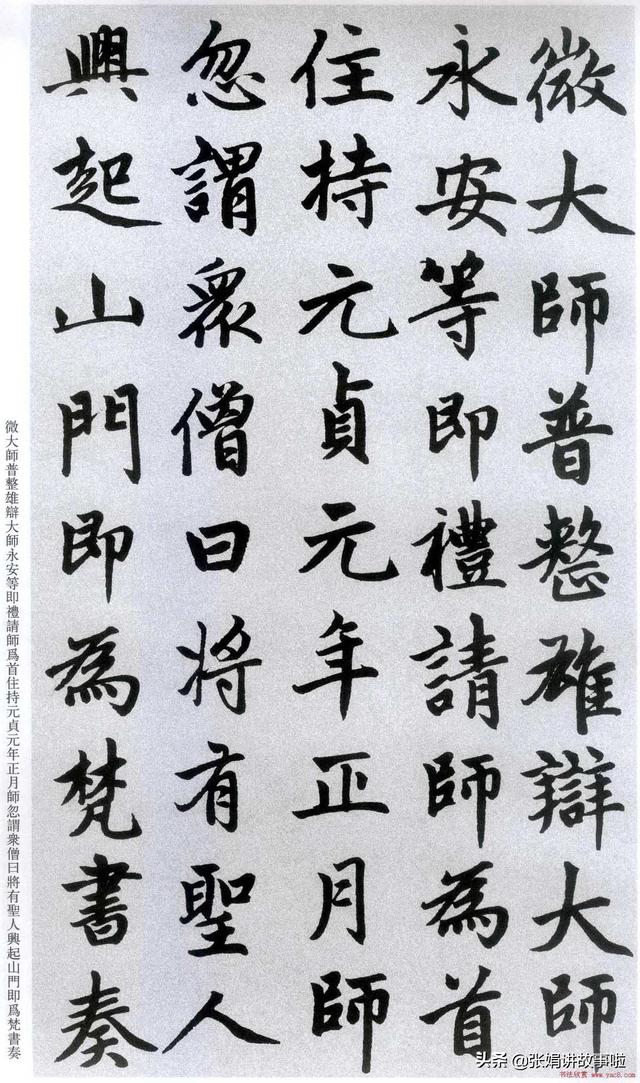 微大師普整雄辯大師
永安等即禮請師為首
住持元貞元年正月師
忽謂衆僧曰将有聖人
興起山門即為梵書奏
微大師普整雄辯大師永安等即禮請師爲首住持元貞元年正月師忽謂衆僧曰將有聖人興起山門即爲梵書奏
头条 @张娟讲故事啦
书法欣赏 www.yac8.com